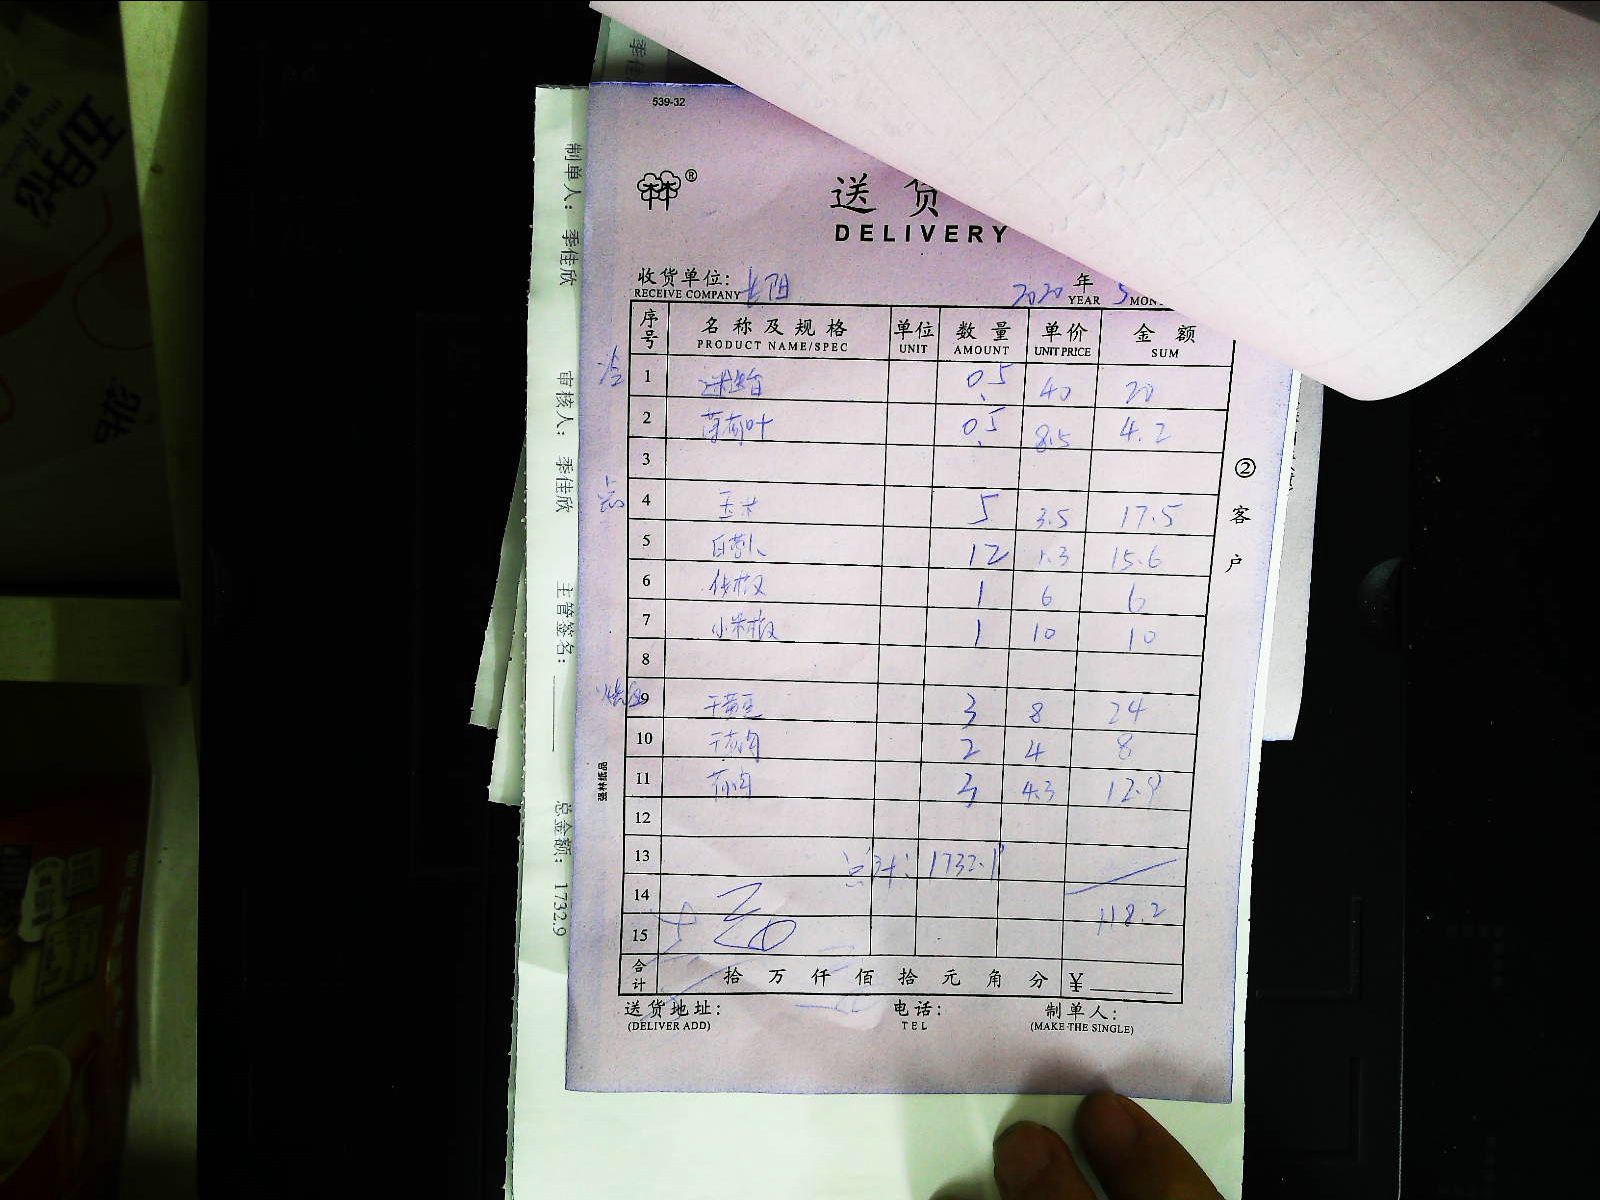 539-32
®
送 货
DELIVERY
收货单位:
RECEIVE COMPANY
2020 年 5
YEAR MON
序号 名称及规格 单位 数量 单价 金额
PRODUCT NAME/SPEC UNIT AMOUNT UNIT PRICE SUM
1 迷迭香 0.5 40 20
2 薄荷叶 0.5 8.5 4.2
3
4 玉米 5 3.5 17.5
5 白萝卜 12 1.3 15.6
6 1 6 6
7 小米椒 1 10 10
8
9 干黄豆 3 8 24
10 2 4 8
11 3 4.3 12.9
12
13 总计: 1732.9
14 118.2
15
合计 拾 万 仟 佰 拾 元 角 分 ¥
送货地址: 电话: 制单人:
(DELIVER ADD) TEL (MAKE THE SINGLE)
② 客户
强林纸品
制单人: 季佳欣 审核人: 季佳欣 主管签名: 总金额: 1732.9